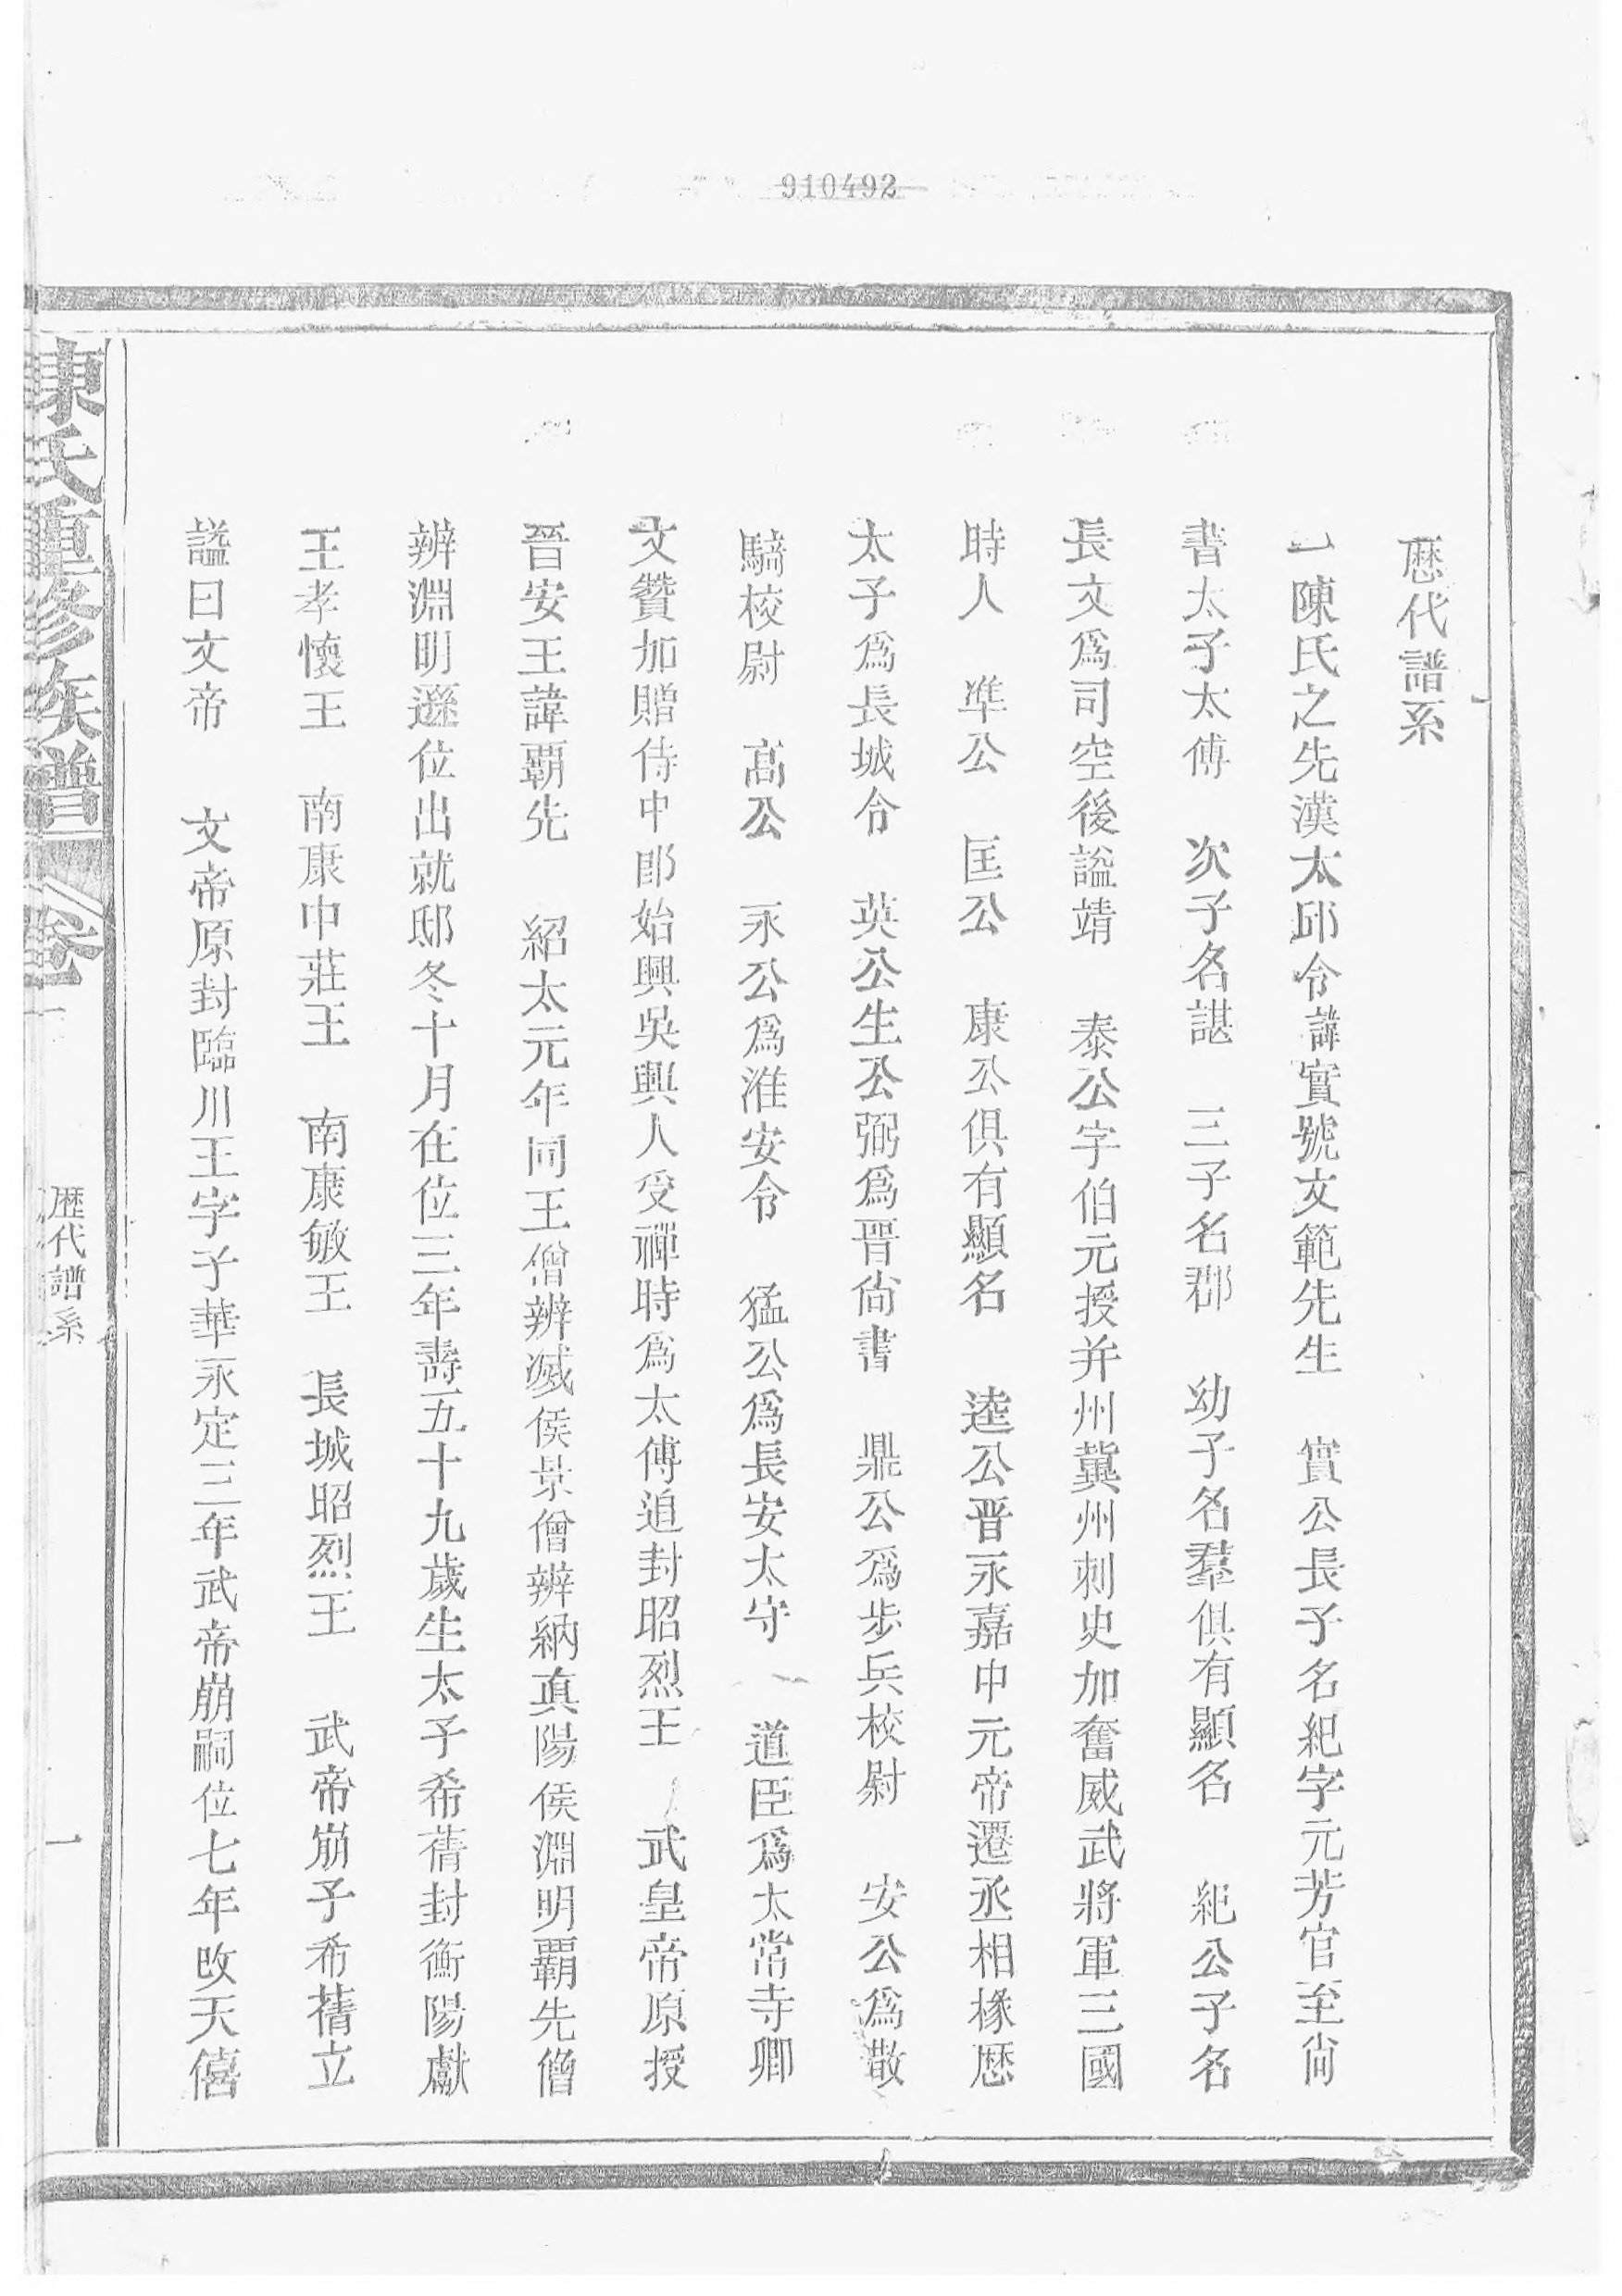 910492
歴代譜系
一陳氏之先漢太邱令諱實號文範先生　實公長子名紀字元芳官至尚
書太子太傅　次子名諶　三子名郡　幼子名羣俱有顯名　紀公子名
長文爲司空後謚靖　泰公字伯元授并州冀州刺史加奮威武將軍三國
時人　準公　匡公　康公俱有顯名　逵公晋永嘉中元帝遷丞相掾歴
太子爲長城令　英公生公弼爲晋尙書　鼎公爲步兵校尉　安公爲散
騎校尉　高公　永公爲淮安令　猛公爲長安太守　道臣爲太常寺卿
文贊加贈侍中郎始興吳興人受禪時爲太傅追封昭烈王　武皇帝原授
晉安王諱覇先　紹太元年同王僧辨滅侯景僧辨納真陽侯淵明覇先僧
辨淵明遜位出就邸冬十月在位三年壽五十九歲生太子希蒨封衡陽獻
王孝懷王　南康中莊王　南康敏王　長城昭烈王　武帝崩子希蒨立
謚曰文帝　文帝原封臨川王字子華永定三年武帝崩嗣位七年改天僖
陳氏重修族譜
卷
歴代譜系
一